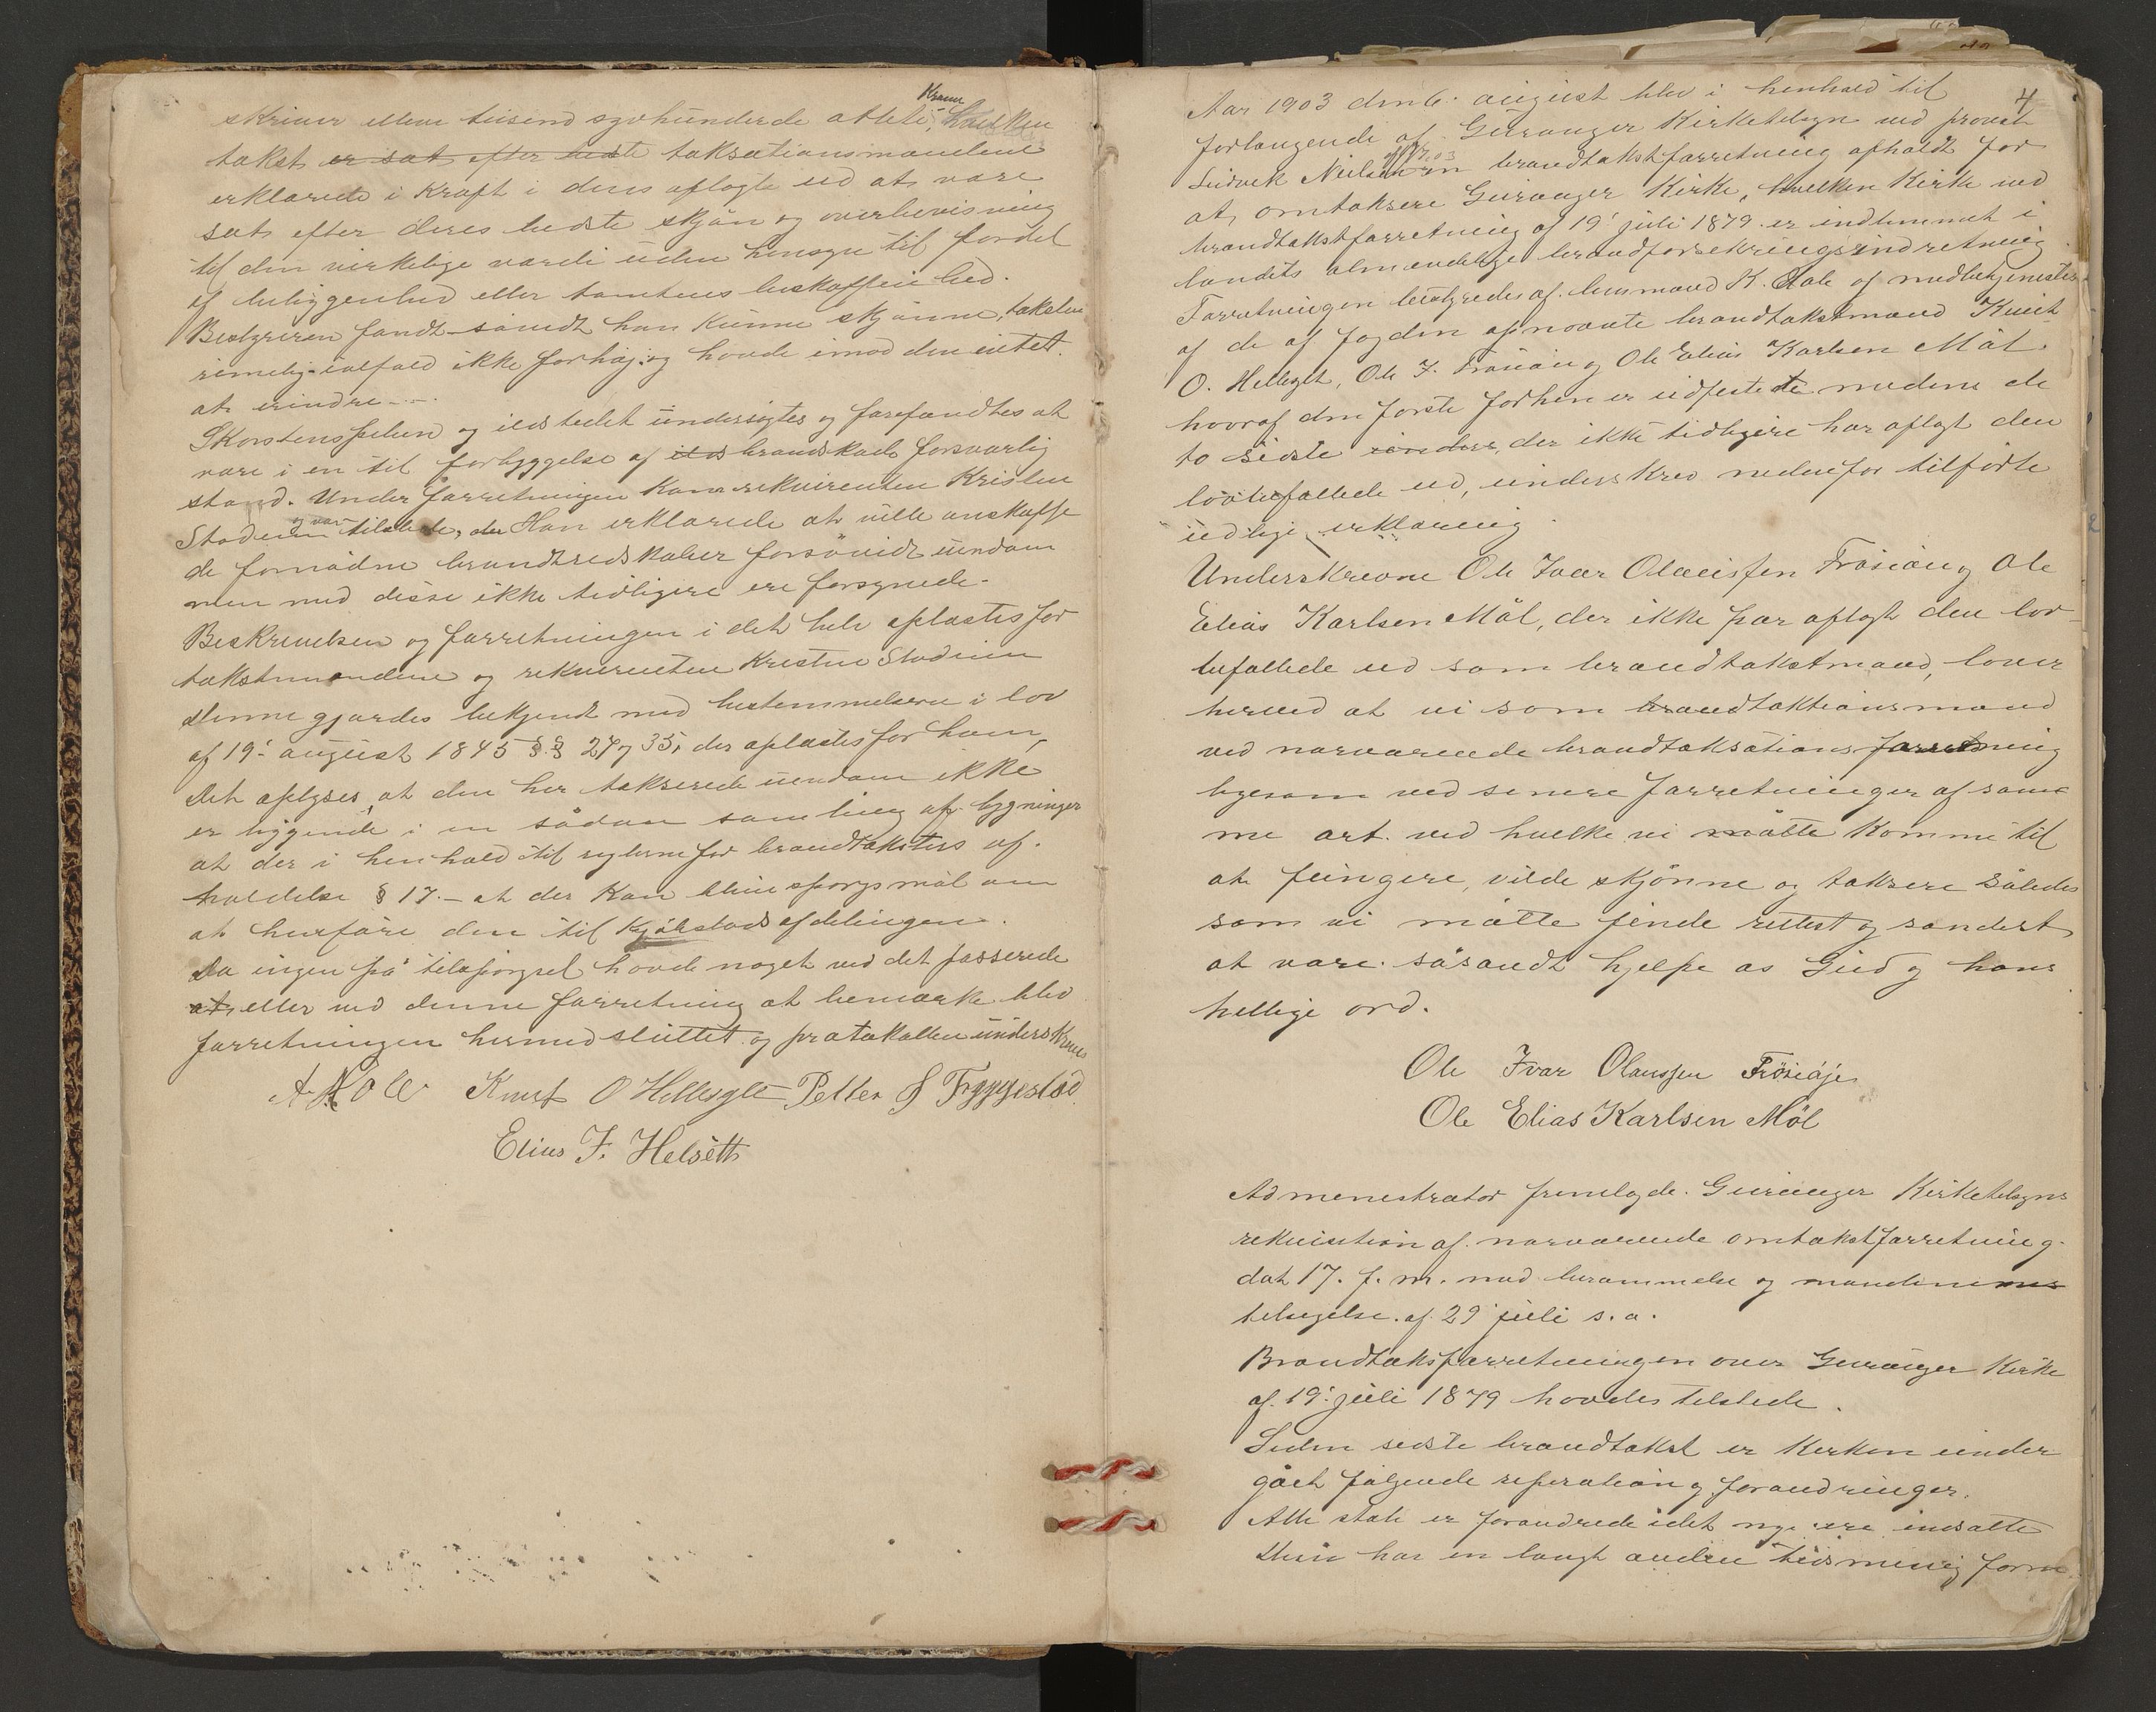 skriver elleve tusind syvhundrede otteti, Kroner hvilken
takst er sat efter bedste taksationsmændene
erklærede i kraft i deres aflagte ed at være
sat efter deres bedste skjøn og overbevisning
til den virkelige værdi uden hensyn til fordel
af beliggenhed eller tomtens beskaffenhed.
Bestyreren fandt såvidt han kunne skjønne, taksten
rimelig ialfald ikke forhøj og havde imod den intet
at erindre —.
Skorstenspiben og ildstedet undersøgtes og forefandtes at
være i en til forbyggelse af ilds brandskade forsvarlig
stand. Under forretningen kom rekvirenten Kristen
Stadheim og var tilstede, der Han erklærede at ville anskaffe
de fornødne brandredskaber forsåvidt eiendom
men med disse ikke tidligere ere forsynede.
Beskrivelsen og forretningen i det hele oplæstes for
takstmændene og rekvirenten Kristen Stadheim
denne gjordes bekjendt med bestemmelserne i lov
af 19: august 1845 §.§ 27 og 35, der oplæstes for ham,
Det oplyses, at den her takserede eiendom ikke
er liggende i en sådan samling af bygninger
at der i henhold til reglerne for brandtaksters af-
holdelse § 17. – at der kan blive spørgsmål om
at henføre den til Kjøbstadsafdelingen.
Da ingen på tilspørgsel havde noget ved det passerede
at eller ved denne forretning at bemærke blev
forretningen hermed sluttet og protokollen underskreven
Knut O Hellesylt Petter J Tryggestad
Elias J. Helsett
4
Aar 1903 den 6. august blev i henhold til
forlangende af Geiranger Kirketilsyn ved provst
Ludvik Neilsen en brandtakstforretning afholdt for
at omtaksere Geiranger Kirke, hvilken Kirke ved
brandtakstforretning af 19' juli 1879 er indlemmet i
landets almendelige brandforsikringsindretning.
Forretningen bestyredes af lensmand K. Hole og medbetjenester
af de af fogden opnævnte brandtakstmænd Knut
O. Hellesylt, Ole I. Frøisåi og Ole Elias Karlsen Mål.
hvoraf den første forhen er edfestede medens de
to sidste der ikke tidligere har aflagt den
lovbefallede ed, underskrev nedenfor tilførte
edlige erklæring
Underskrevne Ole Ivar Olaussen Frøisåi og Ole
Elias Karlsen Mål, der ikke har aflagt den lov-
befallede ed som brandtakstmænd, lover
herved at vi som brandtaktionsmænd
ved nærværende brandtaksations forretning
ligesom ved senere forretninger af sam-
me art. ved hvilke vi måtte komme til
at fungere, vilde skjønne og taksere således
som vi måtte finde rettest og sandest
at være. såsandt hjelpe os Gud og hans
hellige ord.
Ole Ivar Olaussen
Ole Elias Karlsen Möl
Admenistrator fremlagde. Geiranger Kirketilsyns
rekvisition af. nærværende omtakstforretning.
dat 17. f. m. med berammelse og mændenes
tilsigelse. af 29 juli s. a.
Brandtakstforretningen over Geiranger Kirke
af. 19: juli 1879 havdes tilstede.
Siden sidste brandtakst er Kirken under
gået følgende reperation og forandringer.
Alle stole er forandrede idet nye ere indsatte
Disse har en langt anden tidsmessig form